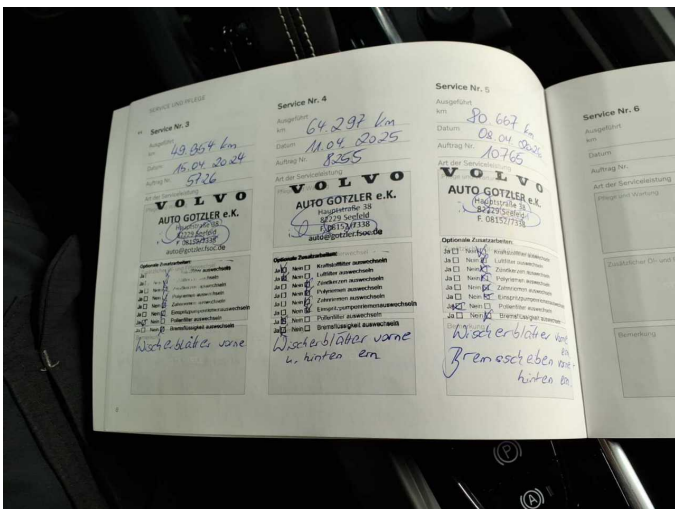 SERVICE UND PFLEGE
Service Nr. 3
Ausgeführt
km 49.964 km
Datum 15.04.2024
Auftrag Nr. 5726
Art der Serviceleistung
VOLVO
AUTO GOTZLER e.K.
Hauptstraße 38
82229 Seefeld
F. 08152/7338
auto@gotzler.fsoc.de
Optionale Zusatzarbeiten:
Ja Nein Kraftstofffilter auswechseln
Ja Nein Luftfilter auswechseln
Ja Nein Zündkerzen auswechseln
Ja Nein Polyriemen auswechseln
Ja Nein Zahnriemen auswechseln
Ja Nein
Ja Nein Pollenfilter auswechseln
Ja Nein Bremsflüssigkeit auswechseln
Wischerblätter vorne
Service Nr. 4
Ausgeführt
km 64.297 km
Datum 11.04.2025
Auftrag Nr. 8255
Art der Serviceleistung
VOLVO
AUTO GOTZLER e.K.
Hauptstraße 38
82229 Seefeld
F. 08152/7338
auto@gotzler.fsoc.de
Optionale Zusatzarbeiten:
Ja Nein Kraftstofffilter auswechseln
Ja Nein Luftfilter auswechseln
Ja Nein Zündkerzen auswechseln
Ja Nein Polyriemen auswechseln
Ja Nein Zahnriemen auswechseln
Ja Nein Einspritzpumpenriemen auswechseln
Ja Nein Pollenfilter auswechseln
Ja Nein Bremsflüssigkeit auswechseln
Wischerblätter vorne
u. hinten ern
Service Nr. 5
Ausgeführt
km 80.667 km
Datum 08.04.2026
Auftrag Nr. 10765
Art der Serviceleistung
VOLVO
AUTO GOTZLER e.K.
Hauptstraße 38
82229 Seefeld
F. 08152/7338
Optionale Zusatzarbeiten:
Ja Nein Kraftstofffilter auswechseln
Ja Nein Luftfilter auswechseln
Ja Nein Zündkerzen auswechseln
Ja Nein Polyriemen auswechseln
Ja Nein Zahnriemen auswechseln
Ja Nein
Ja Nein Pollenfilter auswechseln
Ja Nein Bremsflüssigkeit auswechseln
Bemerkung
Wischerblätter vorne
ern
Bremsscheben vorne +
hinten ern
Service Nr. 6
Ausgeführt
km
Datum
Auftrag Nr.
Art der Serviceleistung
Pflege und Wartung
Bemerkung
P
A